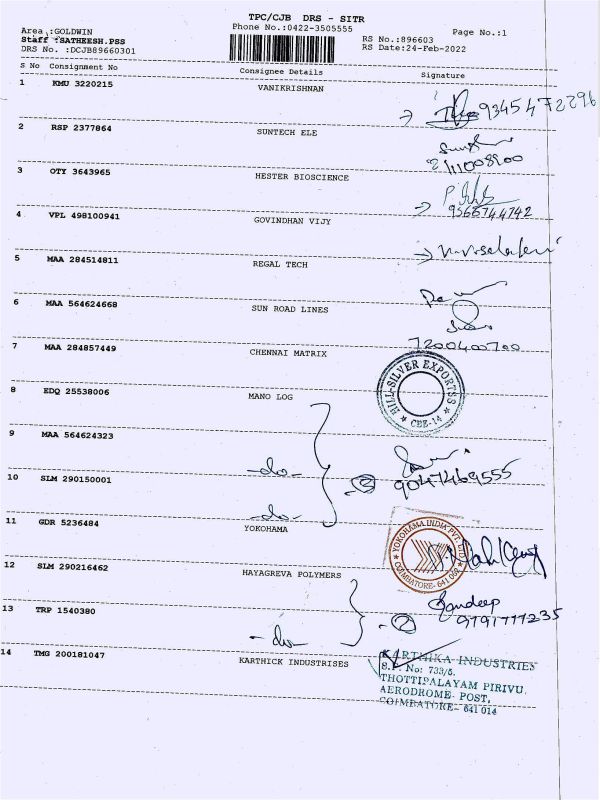 TPC/CJB DRS - SITR
Area :GOLDWIN
Phone No.:0422-3505555
Page No.:1
Staff :SATHEESH.PSS
RS No.:896603
DRS No. :DCJB89660301
RS Date:24-Feb-2022
S No Consignment No Consignee Details Signature
1 KMU 3220215 VANIKRISHNAN
9345472296
2 RSP 2377864 SUNTECH ELE
3 OTY 3643965 HESTER BIOSCIENCE
9565744742
4 VPL 498100941 GOVINDHAN VIJY
5 MAA 284514811 REGAL TECH
6 MAA 564624668 SUN ROAD LINES
7200400700
7 MAA 284857449 CHENNAI MATRIX
HILL-SILVER EXPORTSS
CBE-14
8 EDQ 25538006 MANO LOG
9 MAA 564624323
-do-
10 SLM 290150001
②
9047469555
-do-
11 GDR 5236484 YOKOHAMA
YOKOHAMA INDIA PVT. LTD.
COIMBATORE- 641 062
12 SLM 290216462 HAYAGREVA POLYMERS
Sandeep
9791777235
13 TRP 1540380
-do-
②
14 TMG 200181047 KARTHICK INDUSTRISES
KARTHIKA INDUSTRIES
S.F. No: 733/5,
THOTTIPALAYAM PIRIVU,
AERODROME POST,
COIMBATORE- 641 014